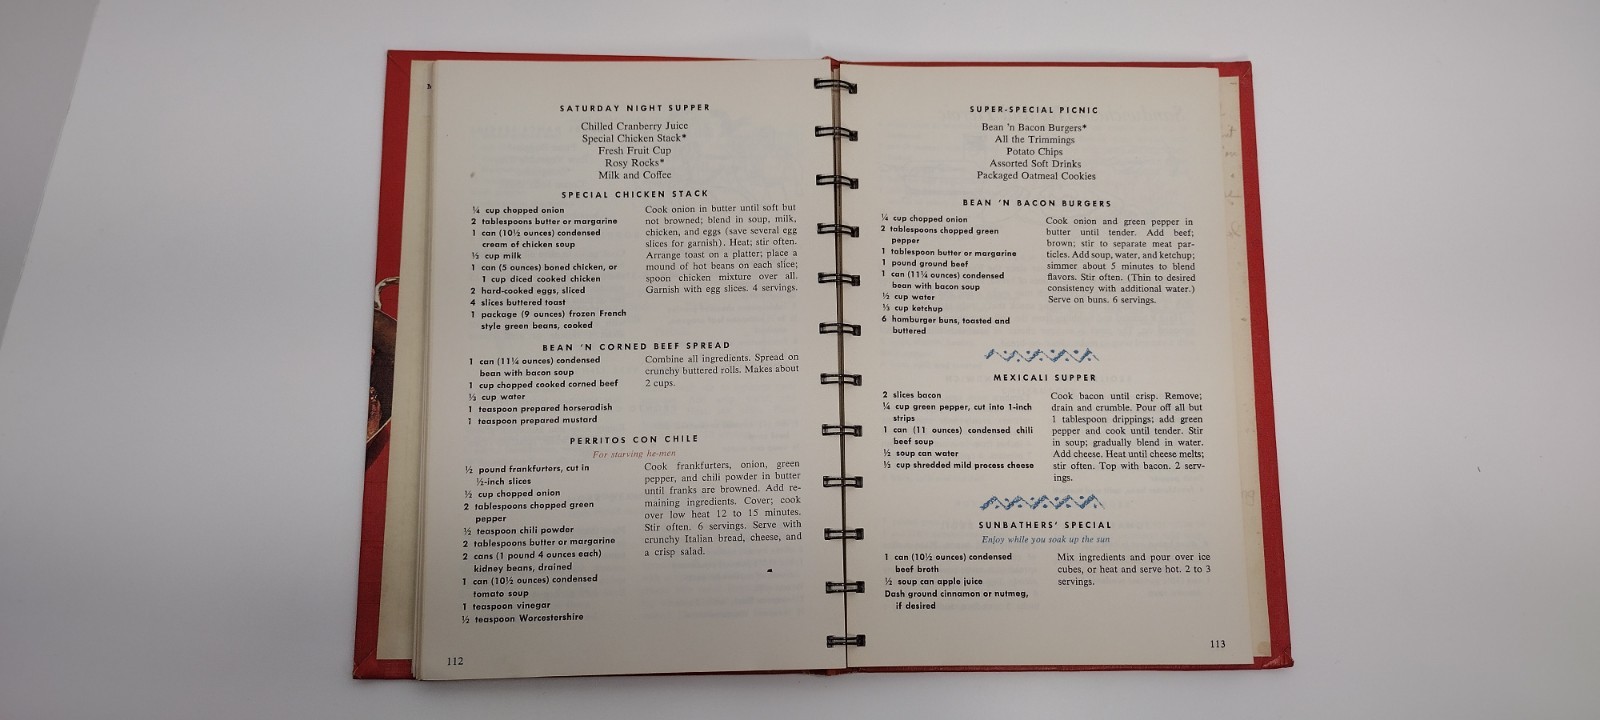 SATURDAY NIGHT SUPPER
Chilled Cranberry Juice
Special Chicken Stack*
Fresh Fruit Cup
Rosy Rocks*
Milk and Coffee
SPECIAL CHICKEN STACK
¼ cup chopped onion
2 tablespoons butter or margarine
1 can (10½ ounces) condensed
cream of chicken soup
⅓ cup milk
1 can (5 ounces) boned chicken, or
1 cup diced cooked chicken
2 hard-cooked eggs, sliced
4 slices buttered toast
1 package (9 ounces) frozen French
style green beans, cooked
Cook onion in butter until soft but
not browned; blend in soup, milk,
chicken, and eggs (save several egg
slices for garnish). Heat; stir often.
Arrange toast on a platter; place a
mound of hot beans on each slice;
spoon chicken mixture over all.
Garnish with egg slices. 4 servings.
BEAN 'N CORNED BEEF SPREAD
1 can (11¼ ounces) condensed
bean with bacon soup
1 cup chopped cooked corned beef
⅓ cup water
1 teaspoon prepared horseradish
1 teaspoon prepared mustard
Combine all ingredients. Spread on
crunchy buttered rolls. Makes about
2 cups.
PERRITOS CON CHILE
For starving he-men
½ pound frankfurters, cut in
½-inch slices
½ cup chopped onion
2 tablespoons chopped green
pepper
½ teaspoon chili powder
2 tablespoons butter or margarine
2 cans (1 pound 4 ounces each)
kidney beans, drained
1 can (10½ ounces) condensed
tomato soup
1 teaspoon vinegar
½ teaspoon Worcestershire
Cook frankfurters, onion, green
pepper, and chili powder in butter
until franks are browned. Add re-
maining ingredients. Cover; cook
over low heat 12 to 15 minutes.
Stir often. 6 servings. Serve with
crunchy Italian bread, cheese, and
a crisp salad.
112
SUPER-SPECIAL PICNIC
Bean 'n Bacon Burgers*
All the Trimmings
Potato Chips
Assorted Soft Drinks
Packaged Oatmeal Cookies
BEAN 'N BACON BURGERS
¼ cup chopped onion
2 tablespoons chopped green
pepper
1 tablespoon butter or margarine
1 pound ground beef
1 can (11¼ ounces) condensed
bean with bacon soup
½ cup water
⅓ cup ketchup
6 hamburger buns, toasted and
buttered
Cook onion and green pepper in
butter until tender. Add beef;
brown; stir to separate meat par-
ticles. Add soup, water, and ketchup;
simmer about 5 minutes to blend
flavors. Stir often. (Thin to desired
consistency with additional water.)
Serve on buns. 6 servings.
MEXICALI SUPPER
2 slices bacon
¼ cup green pepper, cut into 1-inch
strips
1 can (11 ounces) condensed chili
beef soup
½ soup can water
½ cup shredded mild process cheese
Cook bacon until crisp. Remove;
drain and crumble. Pour off all but
1 tablespoon drippings; add green
pepper and cook until tender. Stir
in soup; gradually blend in water.
Add cheese. Heat until cheese melts;
stir often. Top with bacon. 2 serv-
ings.
SUNBATHERS' SPECIAL
Enjoy while you soak up the sun
1 can (10½ ounces) condensed
beef broth
½ soup can apple juice
Dash ground cinnamon or nutmeg,
if desired
Mix ingredients and pour over ice
cubes, or heat and serve hot. 2 to 3
servings.
113